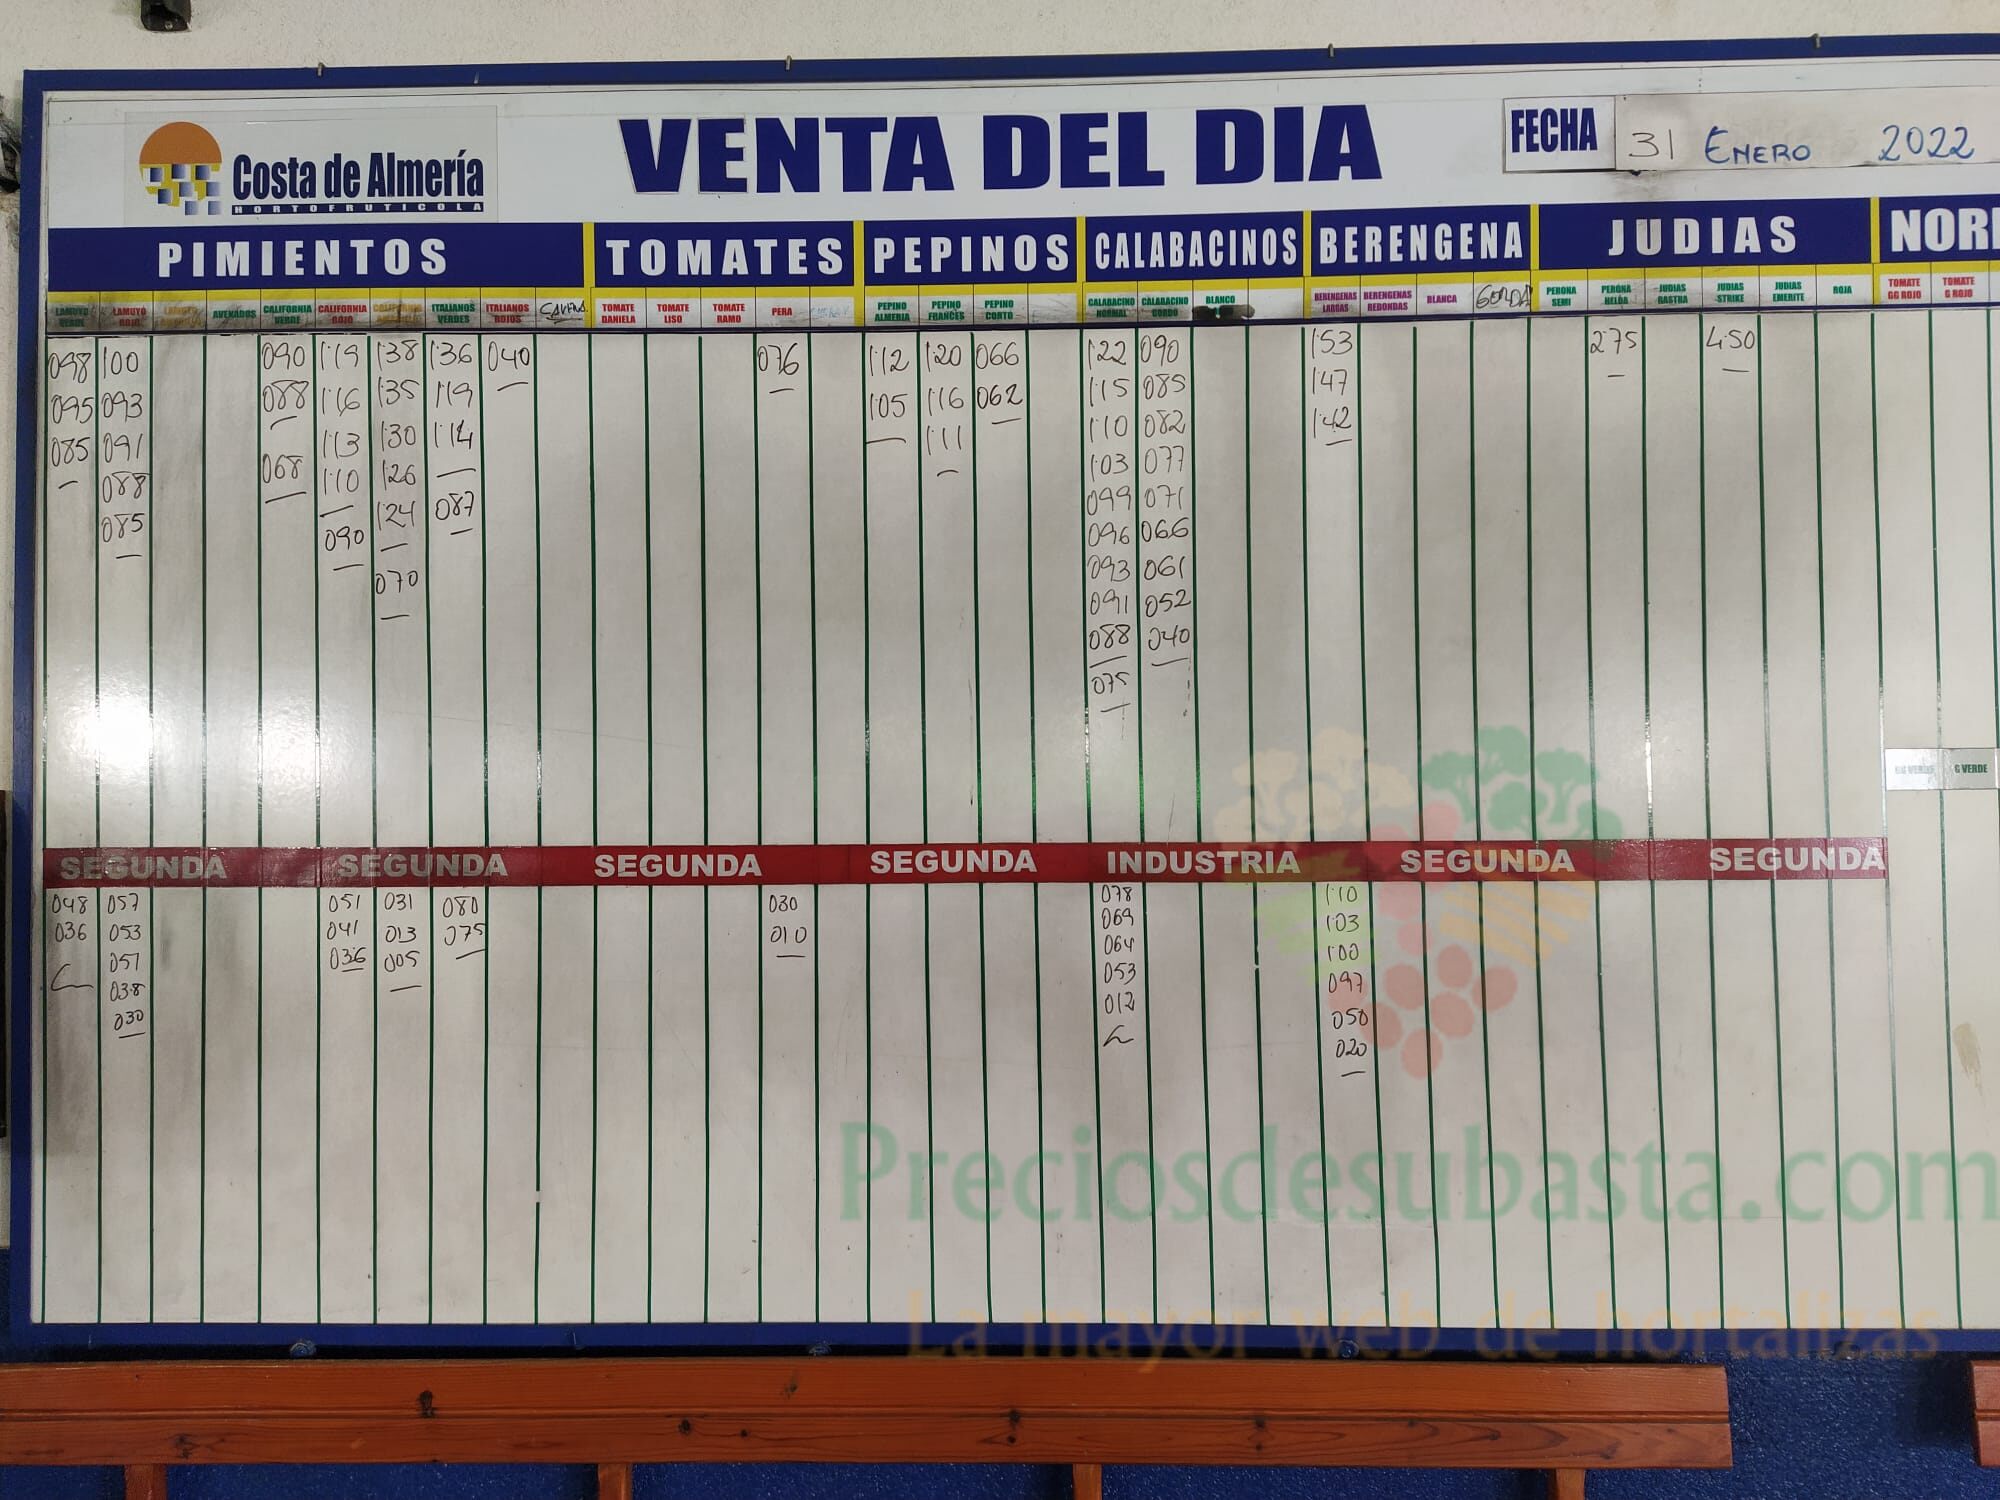 Costa de Almería
HORTOFRUTICOLA
VENTA DEL DIA
FECHA 31 ENERO 2022
PIMIENTOS TOMATES PEPINOS CALABACINOS BERENGENA JUDIAS NOR
LAMUYO VERDE LAMUYO ROJO AVENADOS CALIFORNIA VERDE CALIFORNIA ROJO ITALIANOS VERDES ITALIANOS ROJOS TOMATE DANIELA TOMATE LISO TOMATE RAMO PERA PEPINO ALMERIA PEPINO FRANCES PEPINO CORTO CALABACINO NORMAL CALABACINO GORDO BLANCO BERENGENAS LARGAS BERENGENAS REDONDAS BLANCA GORDA PERONA SEMI PERONA HELDA JUDIAS RASTRA JUDIAS STRIKE JUDIAS EMERITE ROJA TOMATE GG ROJO TOMATE G ROJO
098 100 090 1'19 1'38 1'36 040 076 1'12 1'20 066 1'22 090 1'53 2'75 4'50
095 093 088 1'16 1'35 1'19 1'05 1'16 062 1'15 085 1'47
085 091 068 1'13 1'30 1'14 1'11 1'10 082 1'42
088 1'10 1'26 087 1'03 077
085 090 1'24 099 071
070 096 066
093 061
091 052
088 040
075
G VERDE
SEGUNDA SEGUNDA SEGUNDA SEGUNDA INDUSTRIA SEGUNDA SEGUNDA
048 057 051 031 080 030 078 1'10
036 053 041 013 075 010 069 1'03
051 036 005 064 1'00
038 053 097
030 012 050
020
Preciosdesubasta.com
La mayor web de hortalizas